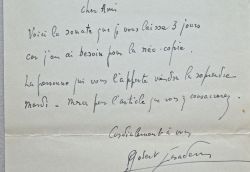 Cher Ami
Voici la sonate que je vous laisse 3 jours
car j'en ai besoin pour la copie.
La personne qui vous l'apporte viendra la reprendre
mardi - merci pour l'article que vous y consacrerez.
Cordialement à vous
Robert